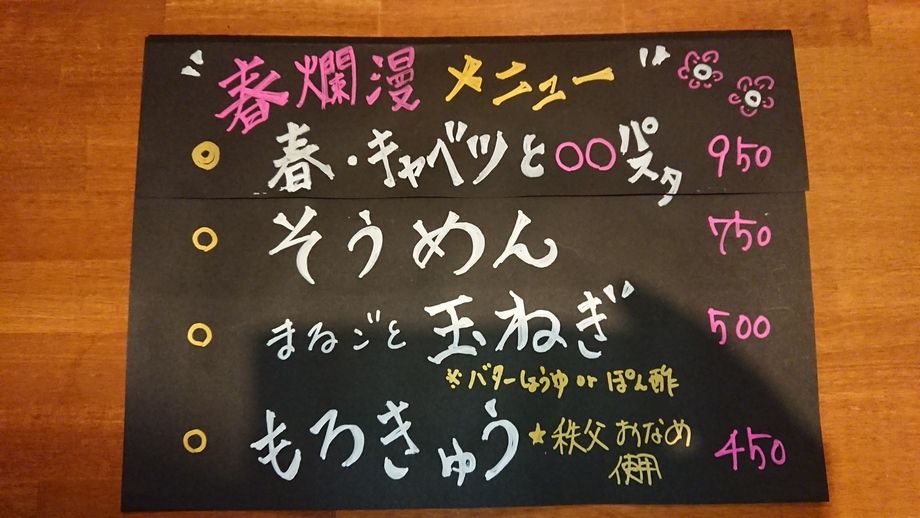 春爛漫 メニュー
春・キャベツと〇〇パスタ 950
そうめん 750
まるごと 玉ねぎ 500
※バターしょうゆ or ぽん酢
もろきゅう ★秩父おなめ使用 450